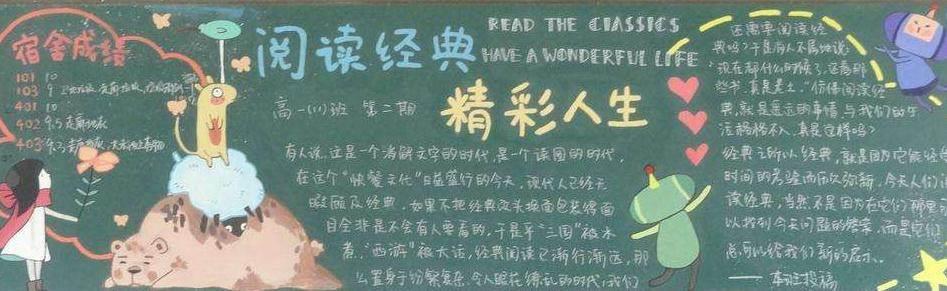 宿舍成绩
101 10
103 9
401 10
402 9.5 走廊垃圾
403 9.5
阅读经典
READ THE CLASSICS
HAVE A WONDERFUL LIFE
高一(11)班 第二期
精彩人生
有人说,这是一个消解文字的时代,是一个读图的时代,
在这个"快餐文化"日益盛行的今天,现代人已经无
暇顾及经典,如果不把经典改头换面包装得面
目全非是不会有人要看的,于是乎"三国"被水
煮,"西游"被大话,经典阅读已渐行渐远,那
么置身于纷繁复杂,令人眼花缭乱的时代,我们
还需要阅读经
典吗?于是有人不屑地说:
"现在都什么时候了,还看那
些书,真是老土。"仿佛阅读经
典,就是遥远的事情,与我们的生
活格格不入,真是这样吗?
经典之所以经典,就是因为它能经
时间的考验而历久弥新,今天人们
读经典,当然不是因为在它们那里
以找到今天问题的答案,而是它们
总可以给我们新的启示。
——本班投稿